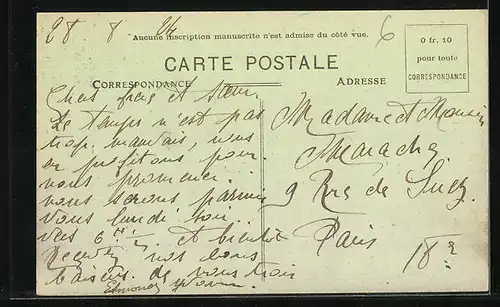 28 8 24
6
Aucune inscription manuscrite n'est admise du côté vue.
0 fr. 10
pour toute
CORRESPONDANCE
CARTE POSTALE
CORRESPONDANCE
ADRESSE
Chers frère et sœur.
Le temps n'est pas
trop mauvais, nous
en profitons pour
nous promener.
nous serons parmi
vous lundi soir...
vers 6 h et bientôt
Recevez nos bons
baisers. de vous trois
Edmond Yvonne
Madame et Monsieur
9 Rue de Suez
Paris
18e